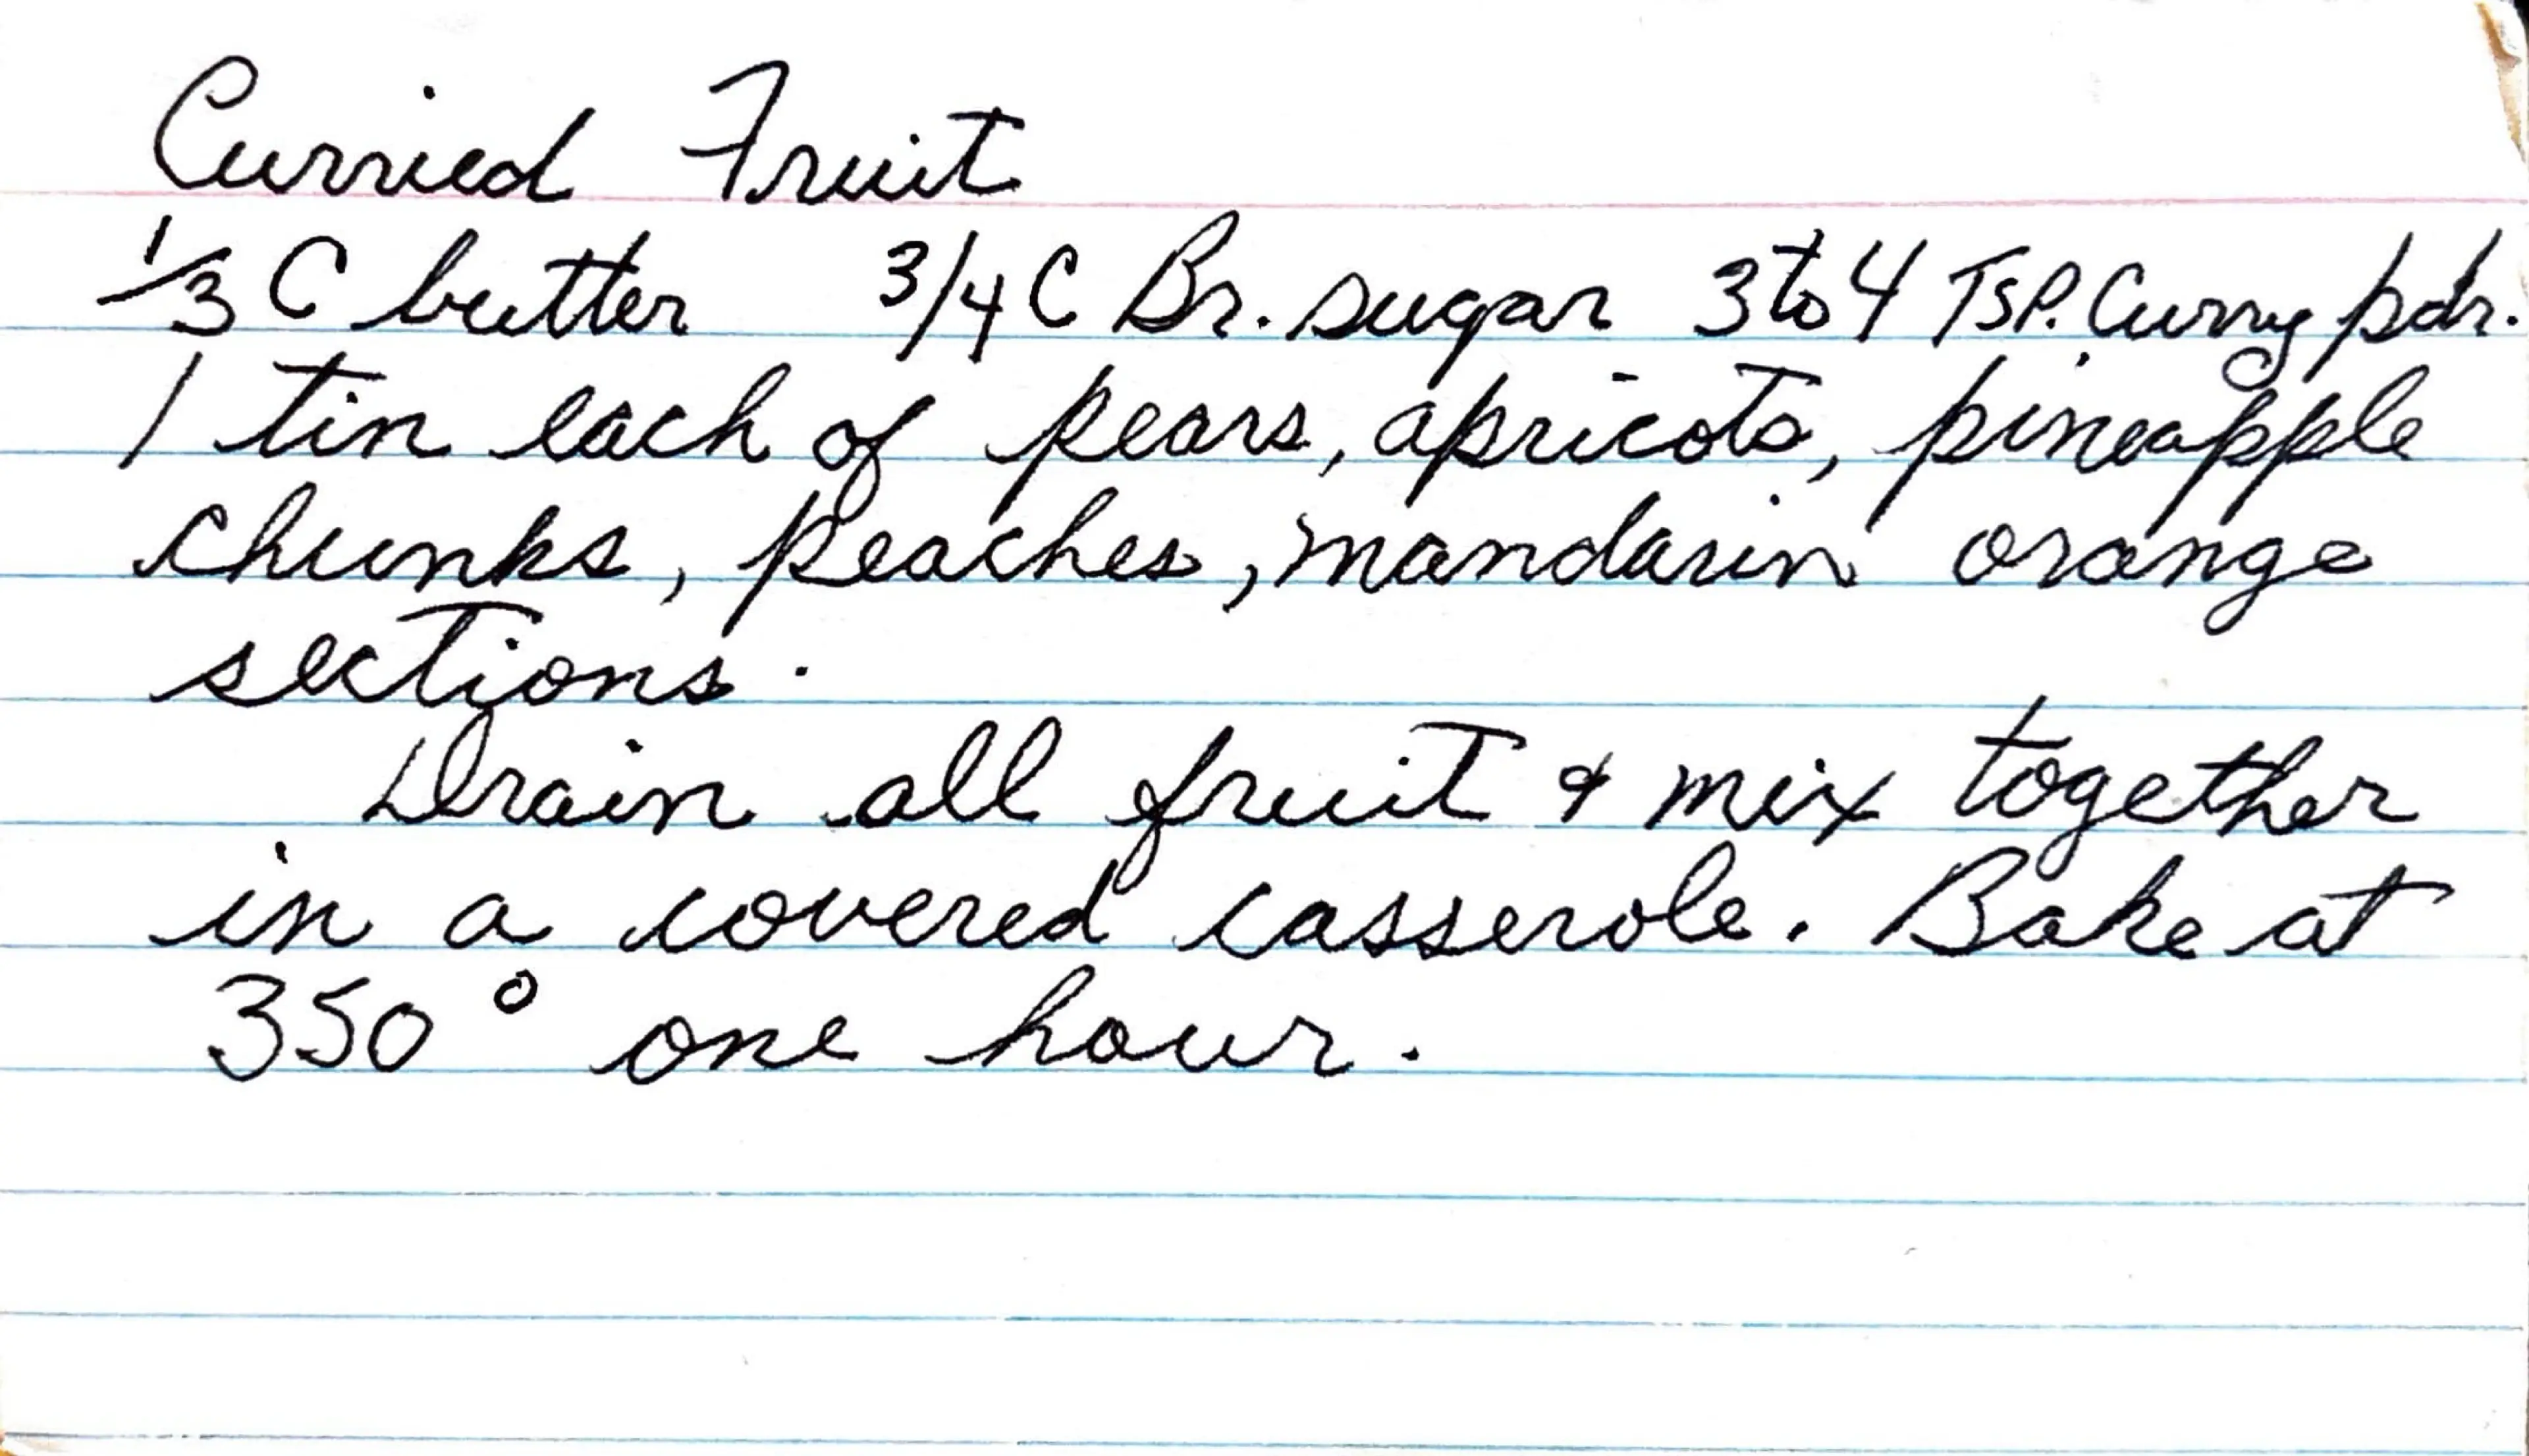 Curried Fruit
1/3 C butter 3/4 C Br. sugar 3 to 4 Tsp. Curry pdr.
1 tin each of pears, apricots, pineapple
chunks, peaches, mandarin orange
sections.
Drain all fruit & mix together
in a covered casserole. Bake at
350° one hour.